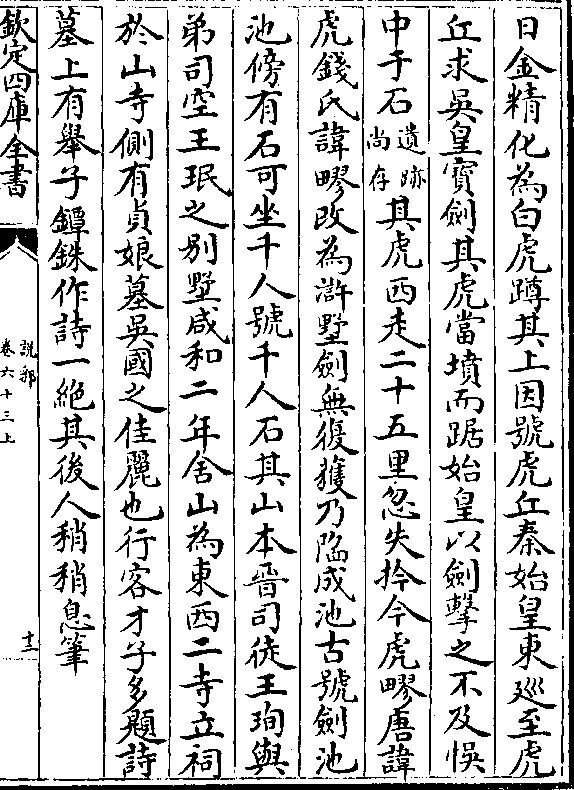 日金精化為白虎蹲其上因號虎丘秦始皇東廵至虎
丘求吳皇寶劍其虎當墳而踞始皇以劍擊之不及悞
中于石遺跡尚存其虎西走二十五里忽失拎今虎疁唐諱
虎錢氏諱疁改為滸墅劍無復獲乃陷成池古號劍池
池傍有石可坐千人號千人石其山本晉司徒王珣與
弟司空王珉之别墅咸和二年舍山為東西二寺立祠
於山寺側有貞娘墓吳國之佳麗也行客才子多題詩
墓上有舉子譚銖作詩一絶其後人稍稍息筆
欽定四庫全書
說郛
卷六十三上
十三